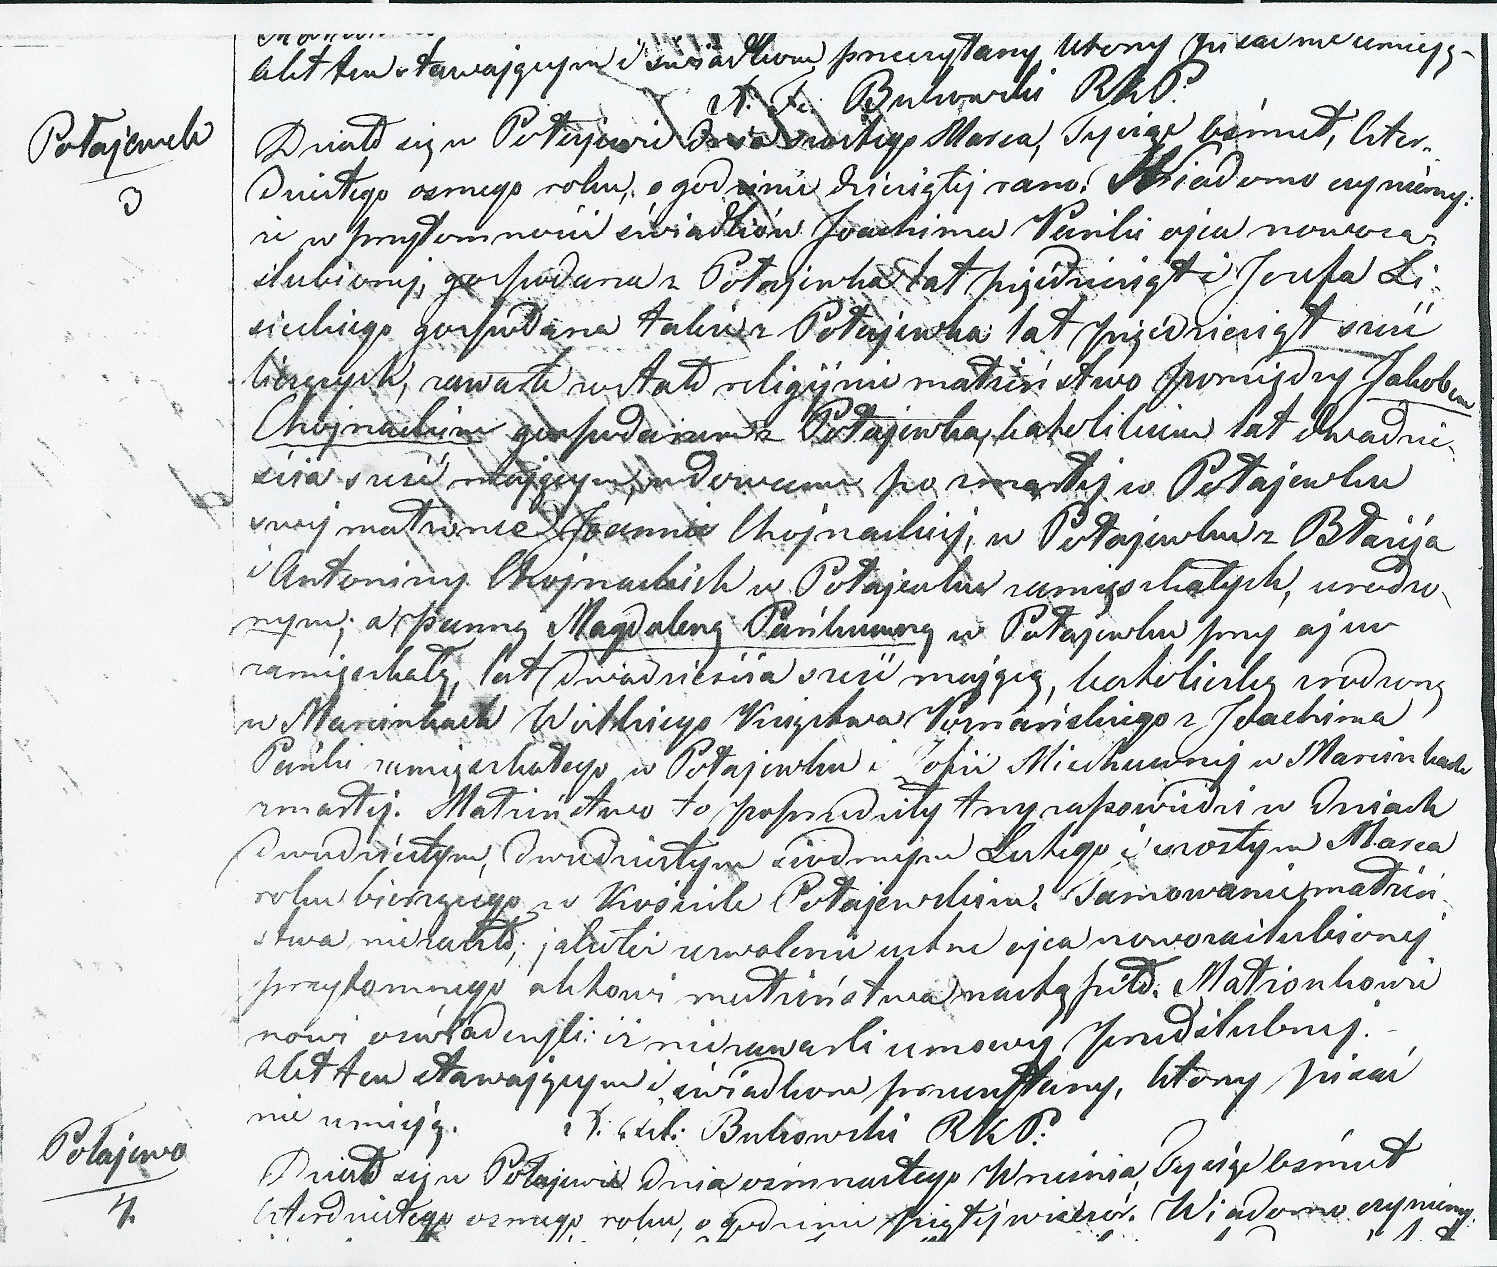 Akt ten stawającym i świadkom przeczytany, który pisać nie umieją.
Bukowski RKP.
Potajewek
3
Działo się w Potajewie dnia szóstego Marca, Tysiąc ośmset, czter-
dziestego osmego roku, o godzinie dziesiątej rano. Wiadomo czynimy:
że w przytomności świadków Joachima Pańki ojca nowoza-
ślubionej, gospodarza z Potajewka lat pięćdziesiąt i Józefa Li-
sieckiego gospodarza także z Potajewka lat pięćdziesiąt sześć
liczących, zawarte zostało religijnie małżeństwo pomiędzy Jakobem
Chojnackim gospodarzem z Potajewka, katolikiem lat dwadzie-
ścia sześć mającym, wdowcem po zmarłej w Potajewku
swej małżonce Joannie Chojnackiej, w Potajewku z Błażeja
i Antoniny Chojnackich w Potajewku zamięszkałych, urodzo-
nym; a panną Magdaleną Pańkuwną w Potajewku przy ojcu
zamięszkałą, lat dwadzieścia sześć mającą, katoliczką zrodzoną
w Marcinkach Wielkiego Księstwa Poznańskiego z Joachima
Pańki zamięszkałego w Potajewku i Zofii Miechuwnej w Marcinkach
zmarłej. Małżeństwo to poprzedziły trzy zapowiedzi w dniach
dwudziestym, dwudziestym siodmym Lutego i szostym Marca
roku bieżącego w Kościele Potajewskim. Tamowanie małżeń-
stwa nie zaszło; jakoteż zezwolenie ustne ojca nowozaślubionej
przytomnego aktowi małżeństwa nastąpiło. Małżonkowie
nowi oświadczyli: iż nie zawarli umowy przedślubnej.
Akt ten stawającym i świadkom przeczytany, który pisać
nie umieją. Bukowski RKP.
Potajewo
4.
Działo się w Potajewie dnia ośmnastego Września, Tysiąc ośmset
czterdziestego osmego roku, o godzinie piątej wieczór. Wiadomo czynimy